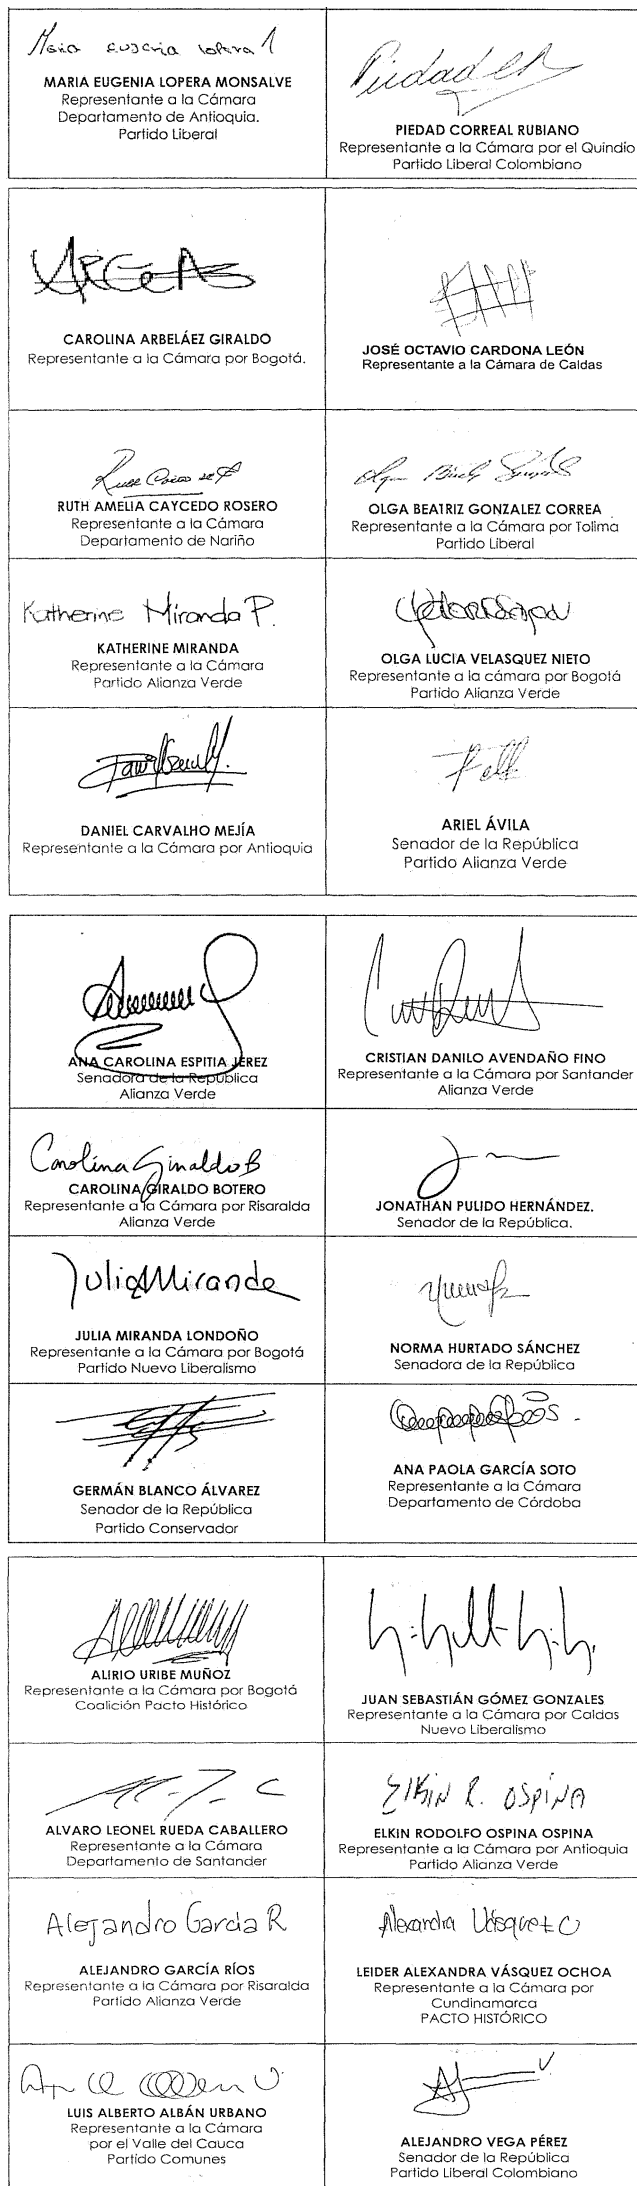 Maria Eugenia Lopera M
MARIA EUGENIA LOPERA MONSALVE
Representante a la Cámara
Departamento de Antioquia.
Partido Liberal
Piedad
PIEDAD CORREAL RUBIANO
Representante a la Cámara por el Quindío
Partido Liberal Colombiano
CAROLINA ARBELÁEZ GIRALDO
Representante a la Cámara por Bogotá.
JOSÉ OCTAVIO CARDONA LEÓN
Representante a la Cámara de Caldas
RUTH AMELIA CAYCEDO ROSERO
Representante a la Cámara
Departamento de Nariño
OLGA BEATRIZ GONZALEZ CORREA
Representante a la Cámara por Tolima
Partido Liberal
Katherine Miranda P.
KATHERINE MIRANDA
Representante a la Cámara
Partido Alianza Verde
OLGA LUCIA VELASQUEZ NIETO
Representante a la cámara por Bogotá
Partido Alianza Verde
DANIEL CARVALHO MEJÍA
Representante a la Cámara por Antioquia
ARIEL ÁVILA
Senador de la República
Partido Alianza Verde
ANA CAROLINA ESPITIA JEREZ
Senadora de la República
Alianza Verde
CRISTIAN DANILO AVENDAÑO FINO
Representante a la Cámara por Santander
Alianza Verde
Carolina Giraldo B
CAROLINA GIRALDO BOTERO
Representante a la Cámara por Risaralda
Alianza Verde
JONATHAN PULIDO HERNÁNDEZ.
Senador de la República.
Julia Miranda
JULIA MIRANDA LONDOÑO
Representante a la Cámara por Bogotá
Partido Nuevo Liberalismo
NORMA HURTADO SÁNCHEZ
Senadora de la República
GERMÁN BLANCO ÁLVAREZ
Senador de la República
Partido Conservador
ANA PAOLA GARCÍA SOTO
Representante a la Cámara
Departamento de Córdoba
ALIRIO URIBE MUÑOZ
Representante a la Cámara por Bogotá
Coalición Pacto Histórico
JUAN SEBASTIÁN GÓMEZ GONZALES
Representante a la Cámara por Caldas
Nuevo Liberalismo
ALVARO LEONEL RUEDA CABALLERO
Representante a la Cámara
Departamento de Santander
Elkin R. Ospina
ELKIN RODOLFO OSPINA OSPINA
Representante a la Cámara por Antioquia
Partido Alianza Verde
Alejandro García R
ALEJANDRO GARCÍA RÍOS
Representante a la Cámara por Risaralda
Partido Alianza Verde
Alexandra Vásquez O
LEIDER ALEXANDRA VÁSQUEZ OCHOA
Representante a la Cámara por
Cundinamarca
PACTO HISTÓRICO
LUIS ALBERTO ALBÁN URBANO
Representante a la Cámara
por el Valle del Cauca
Partido Comunes
ALEJANDRO VEGA PÉREZ
Senador de la República
Partido Liberal Colombiano